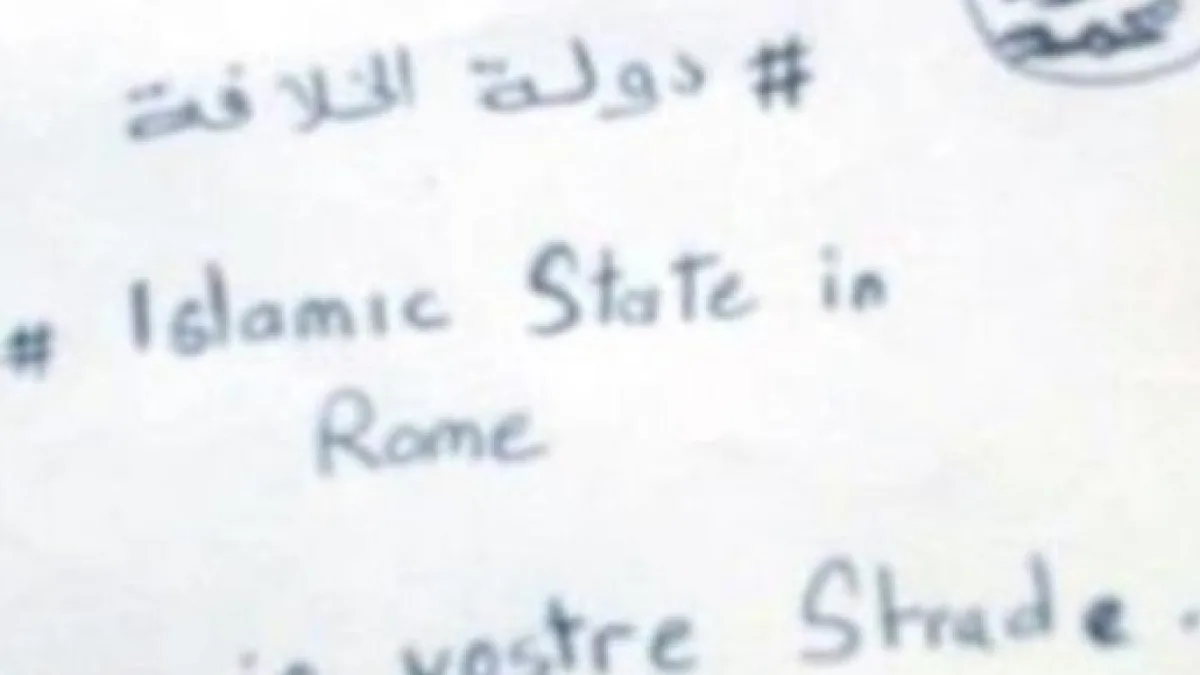 محمد
# دولة الخلافة
# Islamic State in
Rome
in vostre Strade.